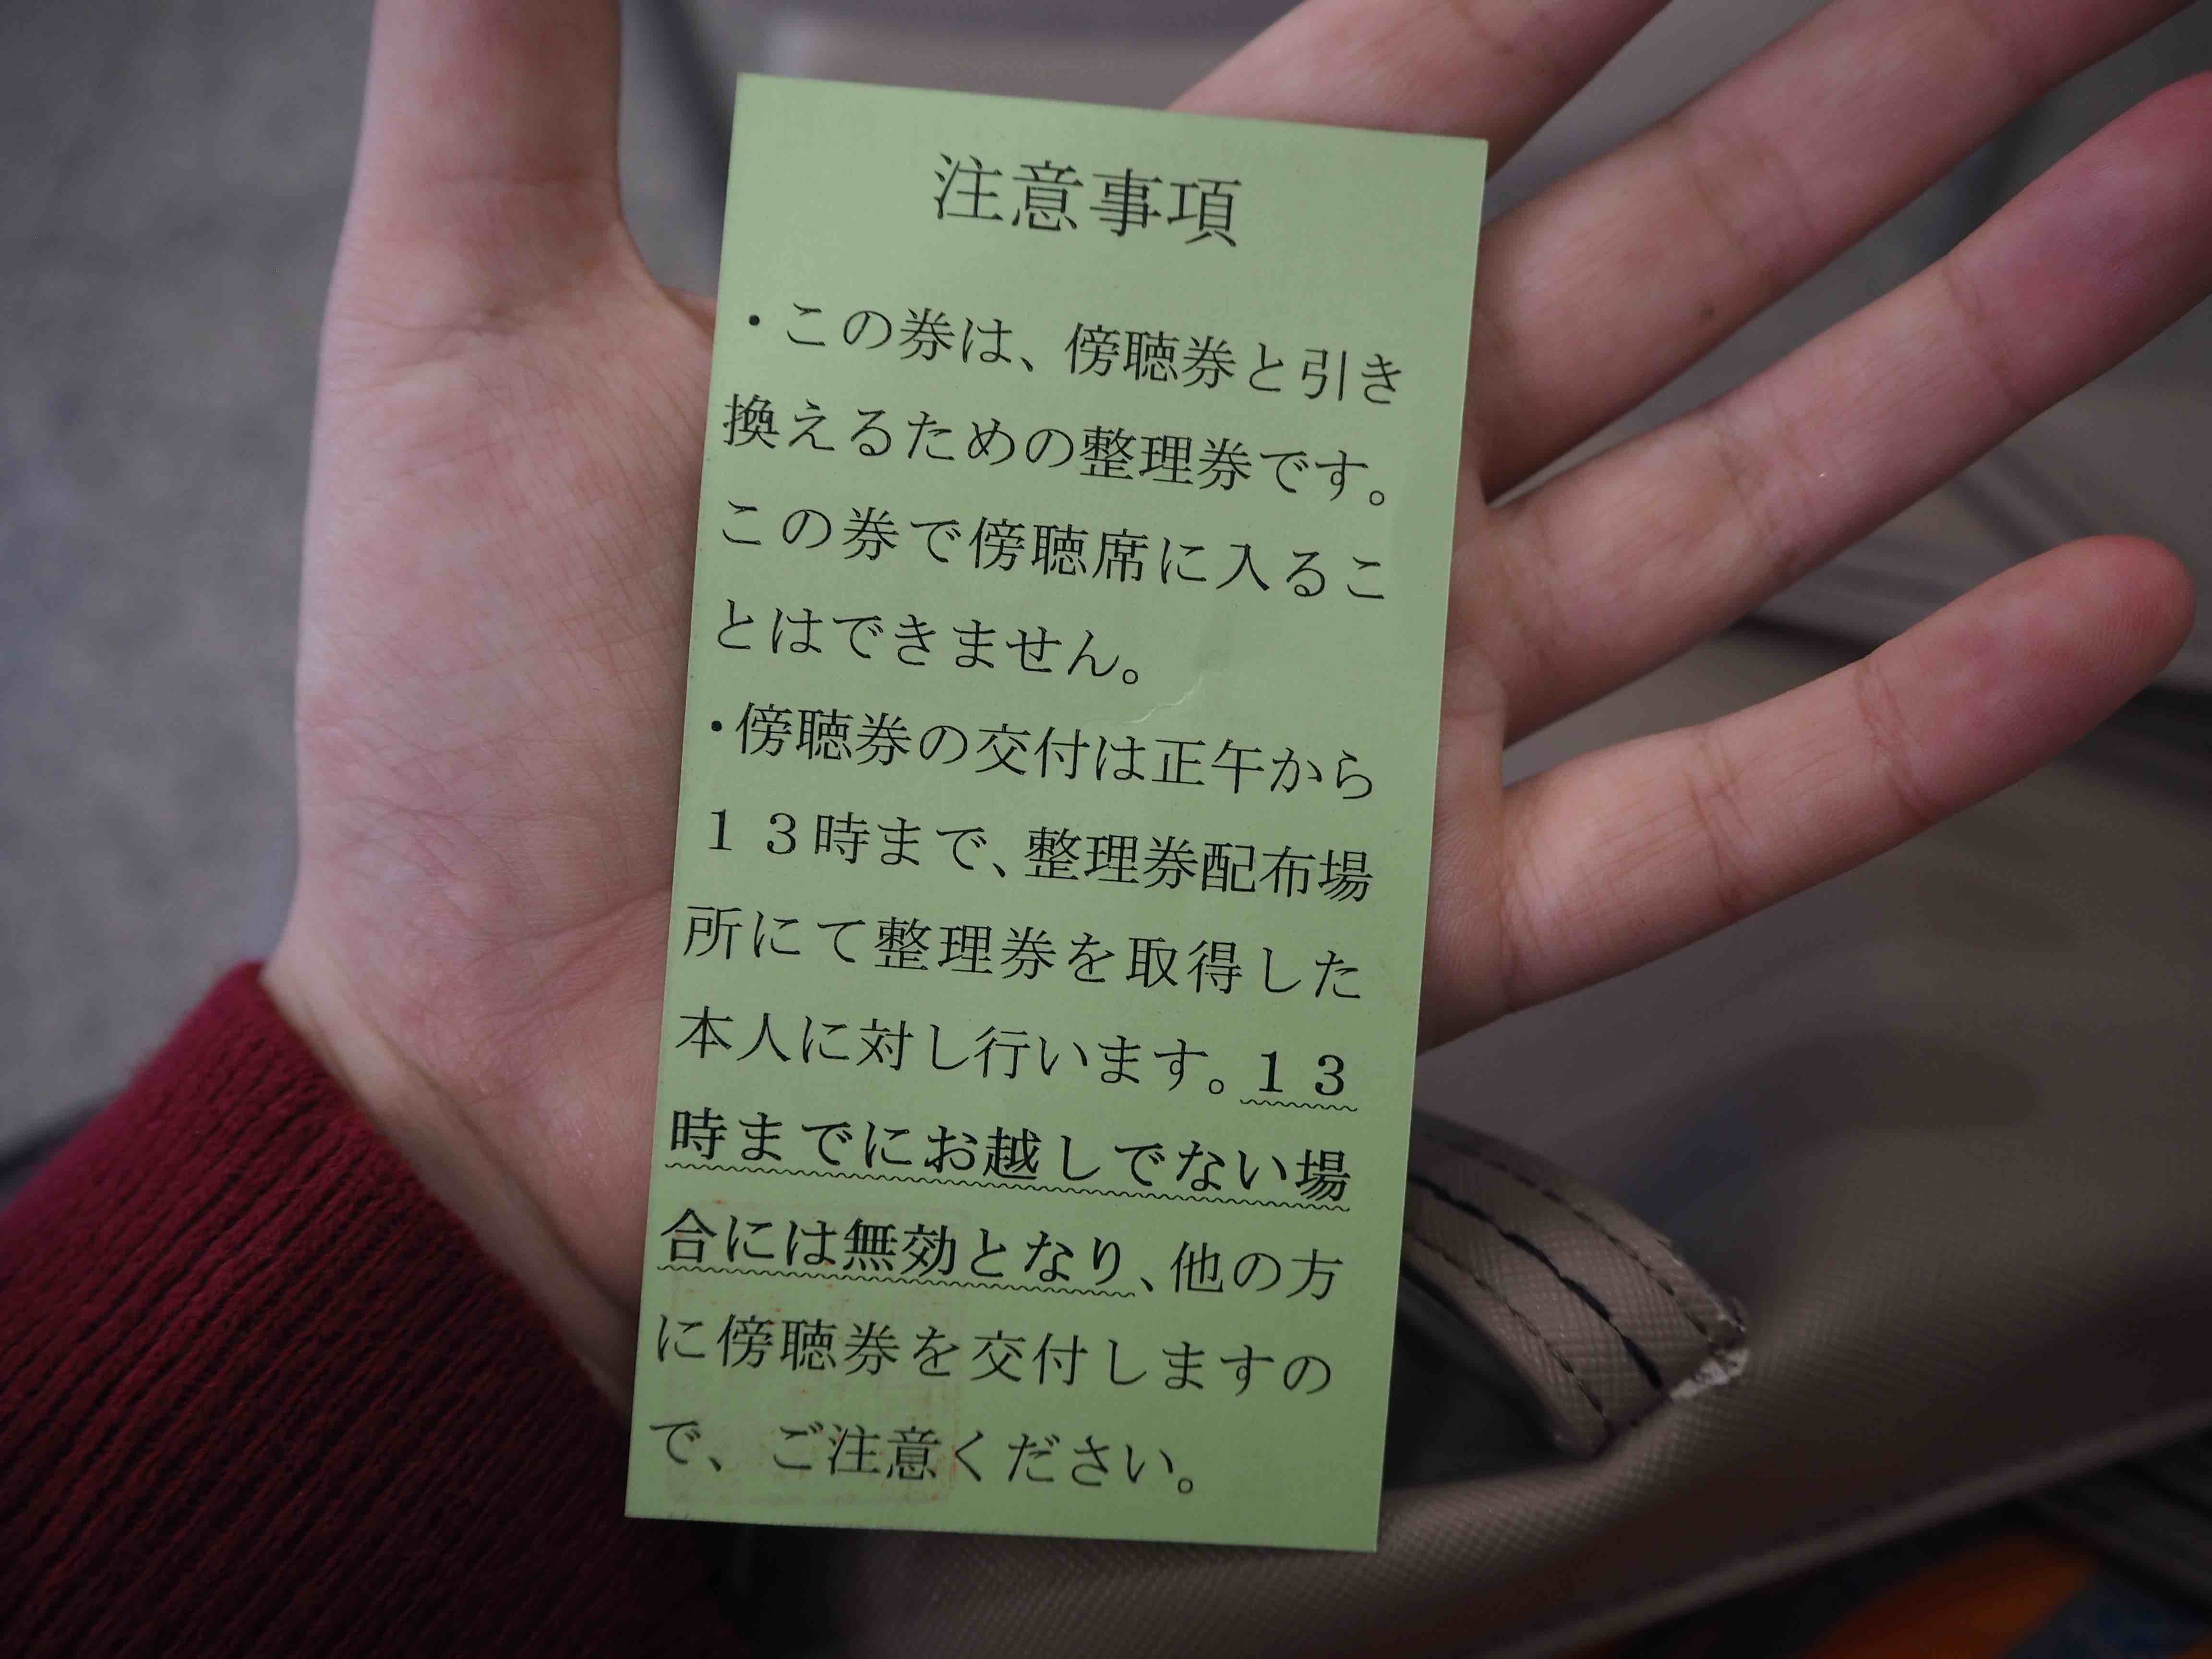 注意事項
・この券は、傍聴券と引き
換えるための整理券です。
この券で傍聴席に入るこ
とはできません。
・傍聴券の交付は正午から
１３時まで、整理券配布場
所にて整理券を取得した
本人に対し行います。１３
時までにお越しでない場
合には無効となり、他の方
に傍聴券を交付しますの
で、ご注意ください。